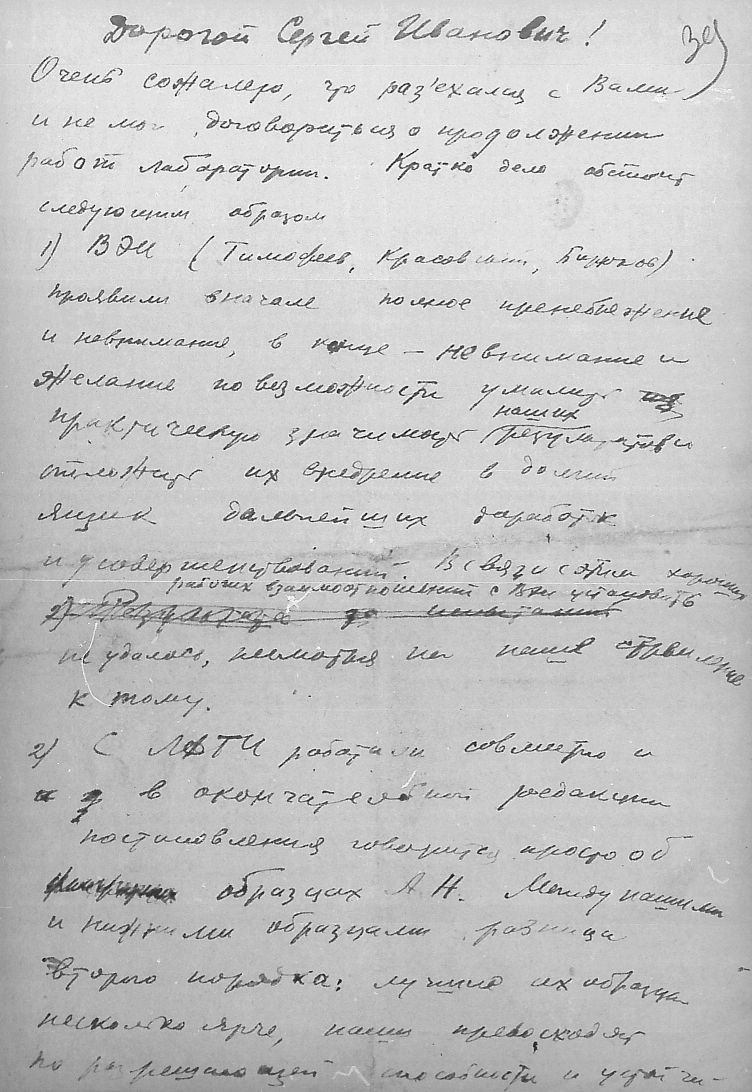 Дорогой Сергей Иванович!
39
Очень сожалею, что раз'ехался с Вами
и не мог договориться о продолжении
работ лаборатории. Кратко дело обстоит
следующим образом
1) ВЭИ (Тимофеев, Красовский, Бирюков)
проявили вначале полное пренебрежение
и невнимание, в конце – невнимание и
желание по возможности умалить
практическую значимость наших результатов и
отложить их внедрение в долгий
ящик дальнейших доработок
и усовершенствований. В связи с этим хороших
рабочих взаимоотношений с ВЭИ установить
2) Результата
не удалось, несмотря на наше стремление
к тому.
2) С ЛФТИ работали совместно и
в окончательной редакции
постановления говорится просто об
образцах А.Н. Между нашими
и ихними образцами разница
второго порядка: лучшие их образцы
несколько ярче, наши превосходят
по разрешающей способности и устойчи-